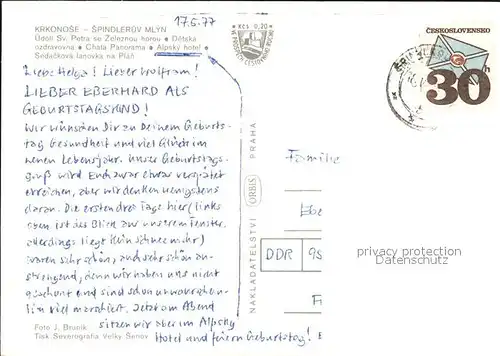 17.5.77
KRKONOŠE – ŠPINDLERŮV MLÝN
Údolí Sv. Petra se Železnou horou • Dětská
ozdravovna • Chata Panorama • Alpský hotel •
Sedačková lanovka na Pláň
Kčs 0,20
Liebe Helga! Lieber Wolfram!
LIEBER EBERHARD ALS
GEBURTSTAGSKIND!
Wir wünschen Dir zu Deinem Geburts-
tag Gesundheit und viel Glück im
neuen Lebensjahr. Unser Geburtstags-
gruß wird Euch zwar etwas verspätet
erreichen, aber wir denken wenigstens
daran. Die ersten drei Tage hier (links
oben ist der Blick aus unserem Fenster,
allerdings liegt kein Schnee mehr)
waren sehr schön, auch sehr schön an-
strengend, denn wir haben uns nicht
geschont und sind schon
viel marschiert. Jetzt am Abend
sitzen wir aber im Alpský
Hotel und feiern Geburtstag!
Foto J. Brunlík
Tisk Severografia Velký Šenov
NAKLADATELSTVÍ ORBIS PRAHA
ČESKOSLOVENSKO
30h
Familie
Ebe
DDR 95
privacy protection
watermark